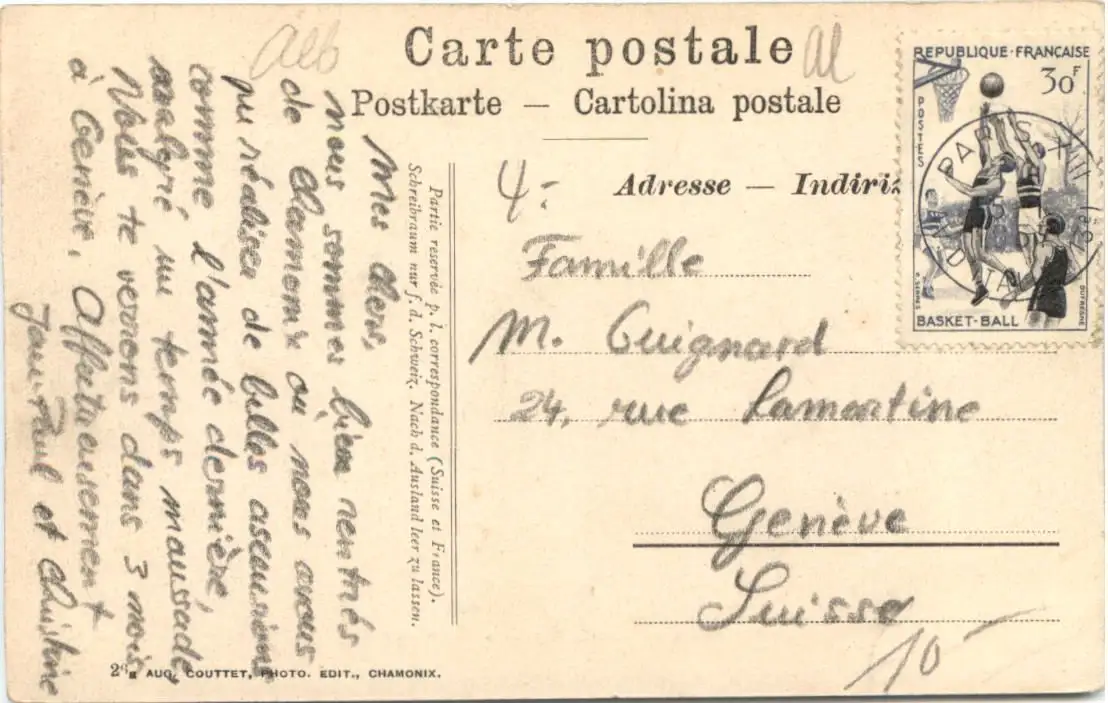 Carte postale
Postkarte — Cartolina postale
Alb
al
Adresse — Indiriz
4.-
Famille
M. Guignard
24, rue Lamartine
Genève
Suisse
10 -
REPUBLIQUE·FRANÇAISE
30F
POSTES
BASKET-BALL
DUFRESNE
PARIS XVII
Partie reservée p. l. correspondance (Suisse et France).
Schreibraum nur f. d. Schweiz. Nach d. Ausland leer zu lassen.
Mes chers,
nous sommes bien rentrés
de Chamonix où nous avons
pu réaliser de belles ascensions
comme l'année dernière,
malgré un temps maussade,
Nous te verrons dans 3 mois
à Genève. Affectueusement
Jean-Paul et Christine
AUG. COUTTET, PHOTO. EDIT., CHAMONIX.